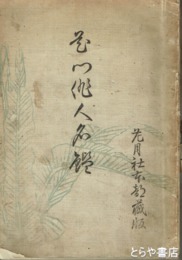 花門俳人名鑑
花月社本部蔵版
とらや書店